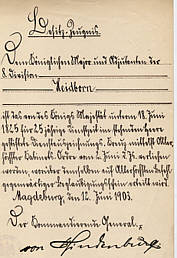 Besitz-Zeugnis.
Dem Königlichen Major und Adjutanten der
8. Division
Heidborn
ist das von des Königs Majestät unterm 18. Juni
1825 für 25jährige Dienstzeit im stehenden Heere
gestiftete Dienstauszeichnungs-Kreuz mittelst Aller-
höchster Kabinets-Order vom 2. Juni d. Js. verliehen
worden, worüber demselben auf Allerhöchsten Befehl
gegenwärtiges Besitzzeugniß ertheilt wird.
Magdeburg, den 12. Juni 1903.
Der Kommandierende General,
von Hindenburg